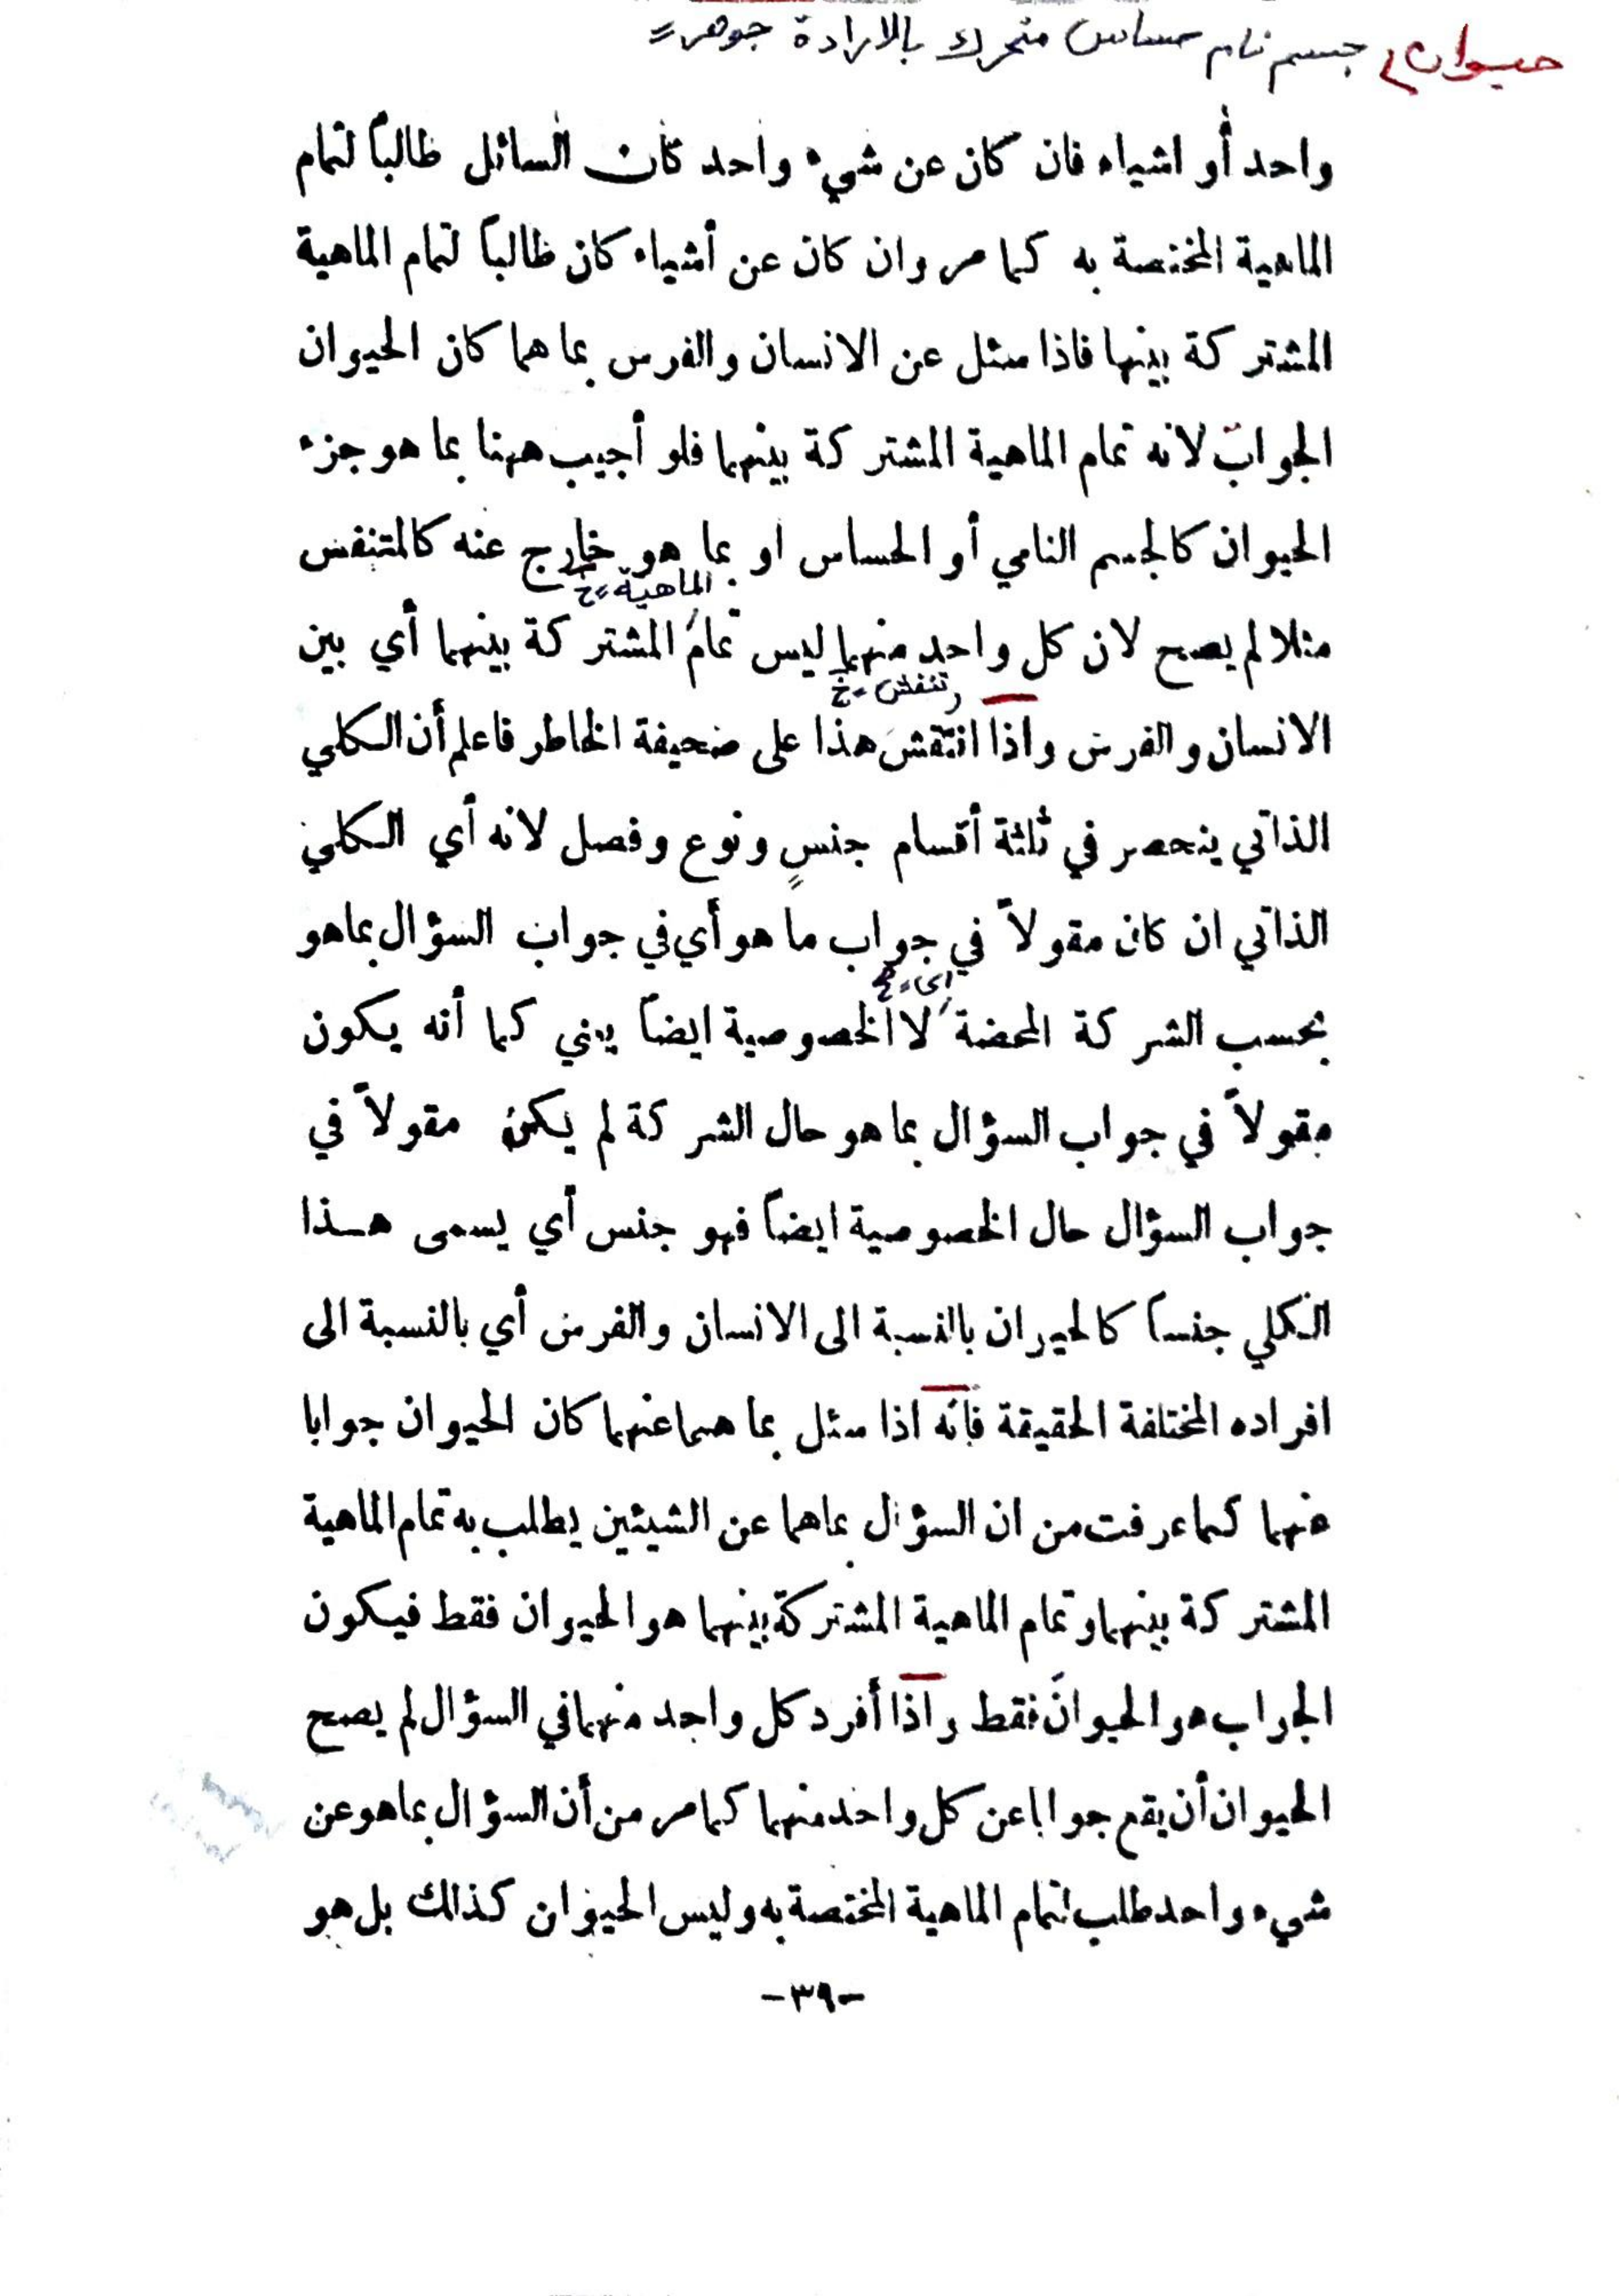 حيوان، جسم نام حساس متحرك بالارادة جوهر
واحد أو اشياء فان كان عن شيء واحد كان السائل طالباً لتمام
الماهية المختصة به كما مر وان كان عن أشياء كان طالباً لتمام الماهية
المشتركة بينها فاذا سئل عن الانسان والفرس بما هما كان الحيوان
الجواب لانه تمام الماهية المشتركة بينهما فلو أجيب ههنا بما هو جزء
الحيوان كالجسم النامي أو الحساس او بما هو خارج عنه كالمتنفس
الماهية خ
مثلا لم يصح لان كل واحد منهما ليس تمام المشتركة بينهما أي بين
تنقش خ
الانسان والفرس واذا انتقش هذا على صحيفة الخاطر فاعلم أن الكلي
الذاتي ينحصر في ثلثة أقسام جنسٍ ونوع وفصل لانه أي الكلي
الذاتي ان كان مقولاً في جواب ما هو أي في جواب السؤال بما هو
اى خ
بحسب الشركة المحضة لا الخصوصية ايضاً يعني كما أنه يكون
مقولاً في جواب السؤال بما هو حال الشركة لم يكن مقولاً في
جواب السؤال حال الخصوصية ايضاً فهو جنس أي يسمى هذا
الكلي جنساً كالحيوان بالنسبة الى الانسان والفرس أي بالنسبة الى
افراده المختلفة الحقيقة فانه اذا سئل بما هما عنهما كان الحيوان جوابا
عنهما كما عرفت من ان السؤال بما هما عن الشيئين يطلب به تمام الماهية
المشتركة بينهما وتمام الماهية المشتركة بينهما هو الحيوان فقط فيكون
الجواب هو الحيوان فقط واذا أفرد كل واحد منهما في السؤال لم يصح
الحيوان أن يقع جوابا عن كل واحد منهما كما مر من أن السؤال بما هو عن
شيء واحد طلب لتمام الماهية المختصة به وليس الحيوان كذالك بل هو
-٣٩-